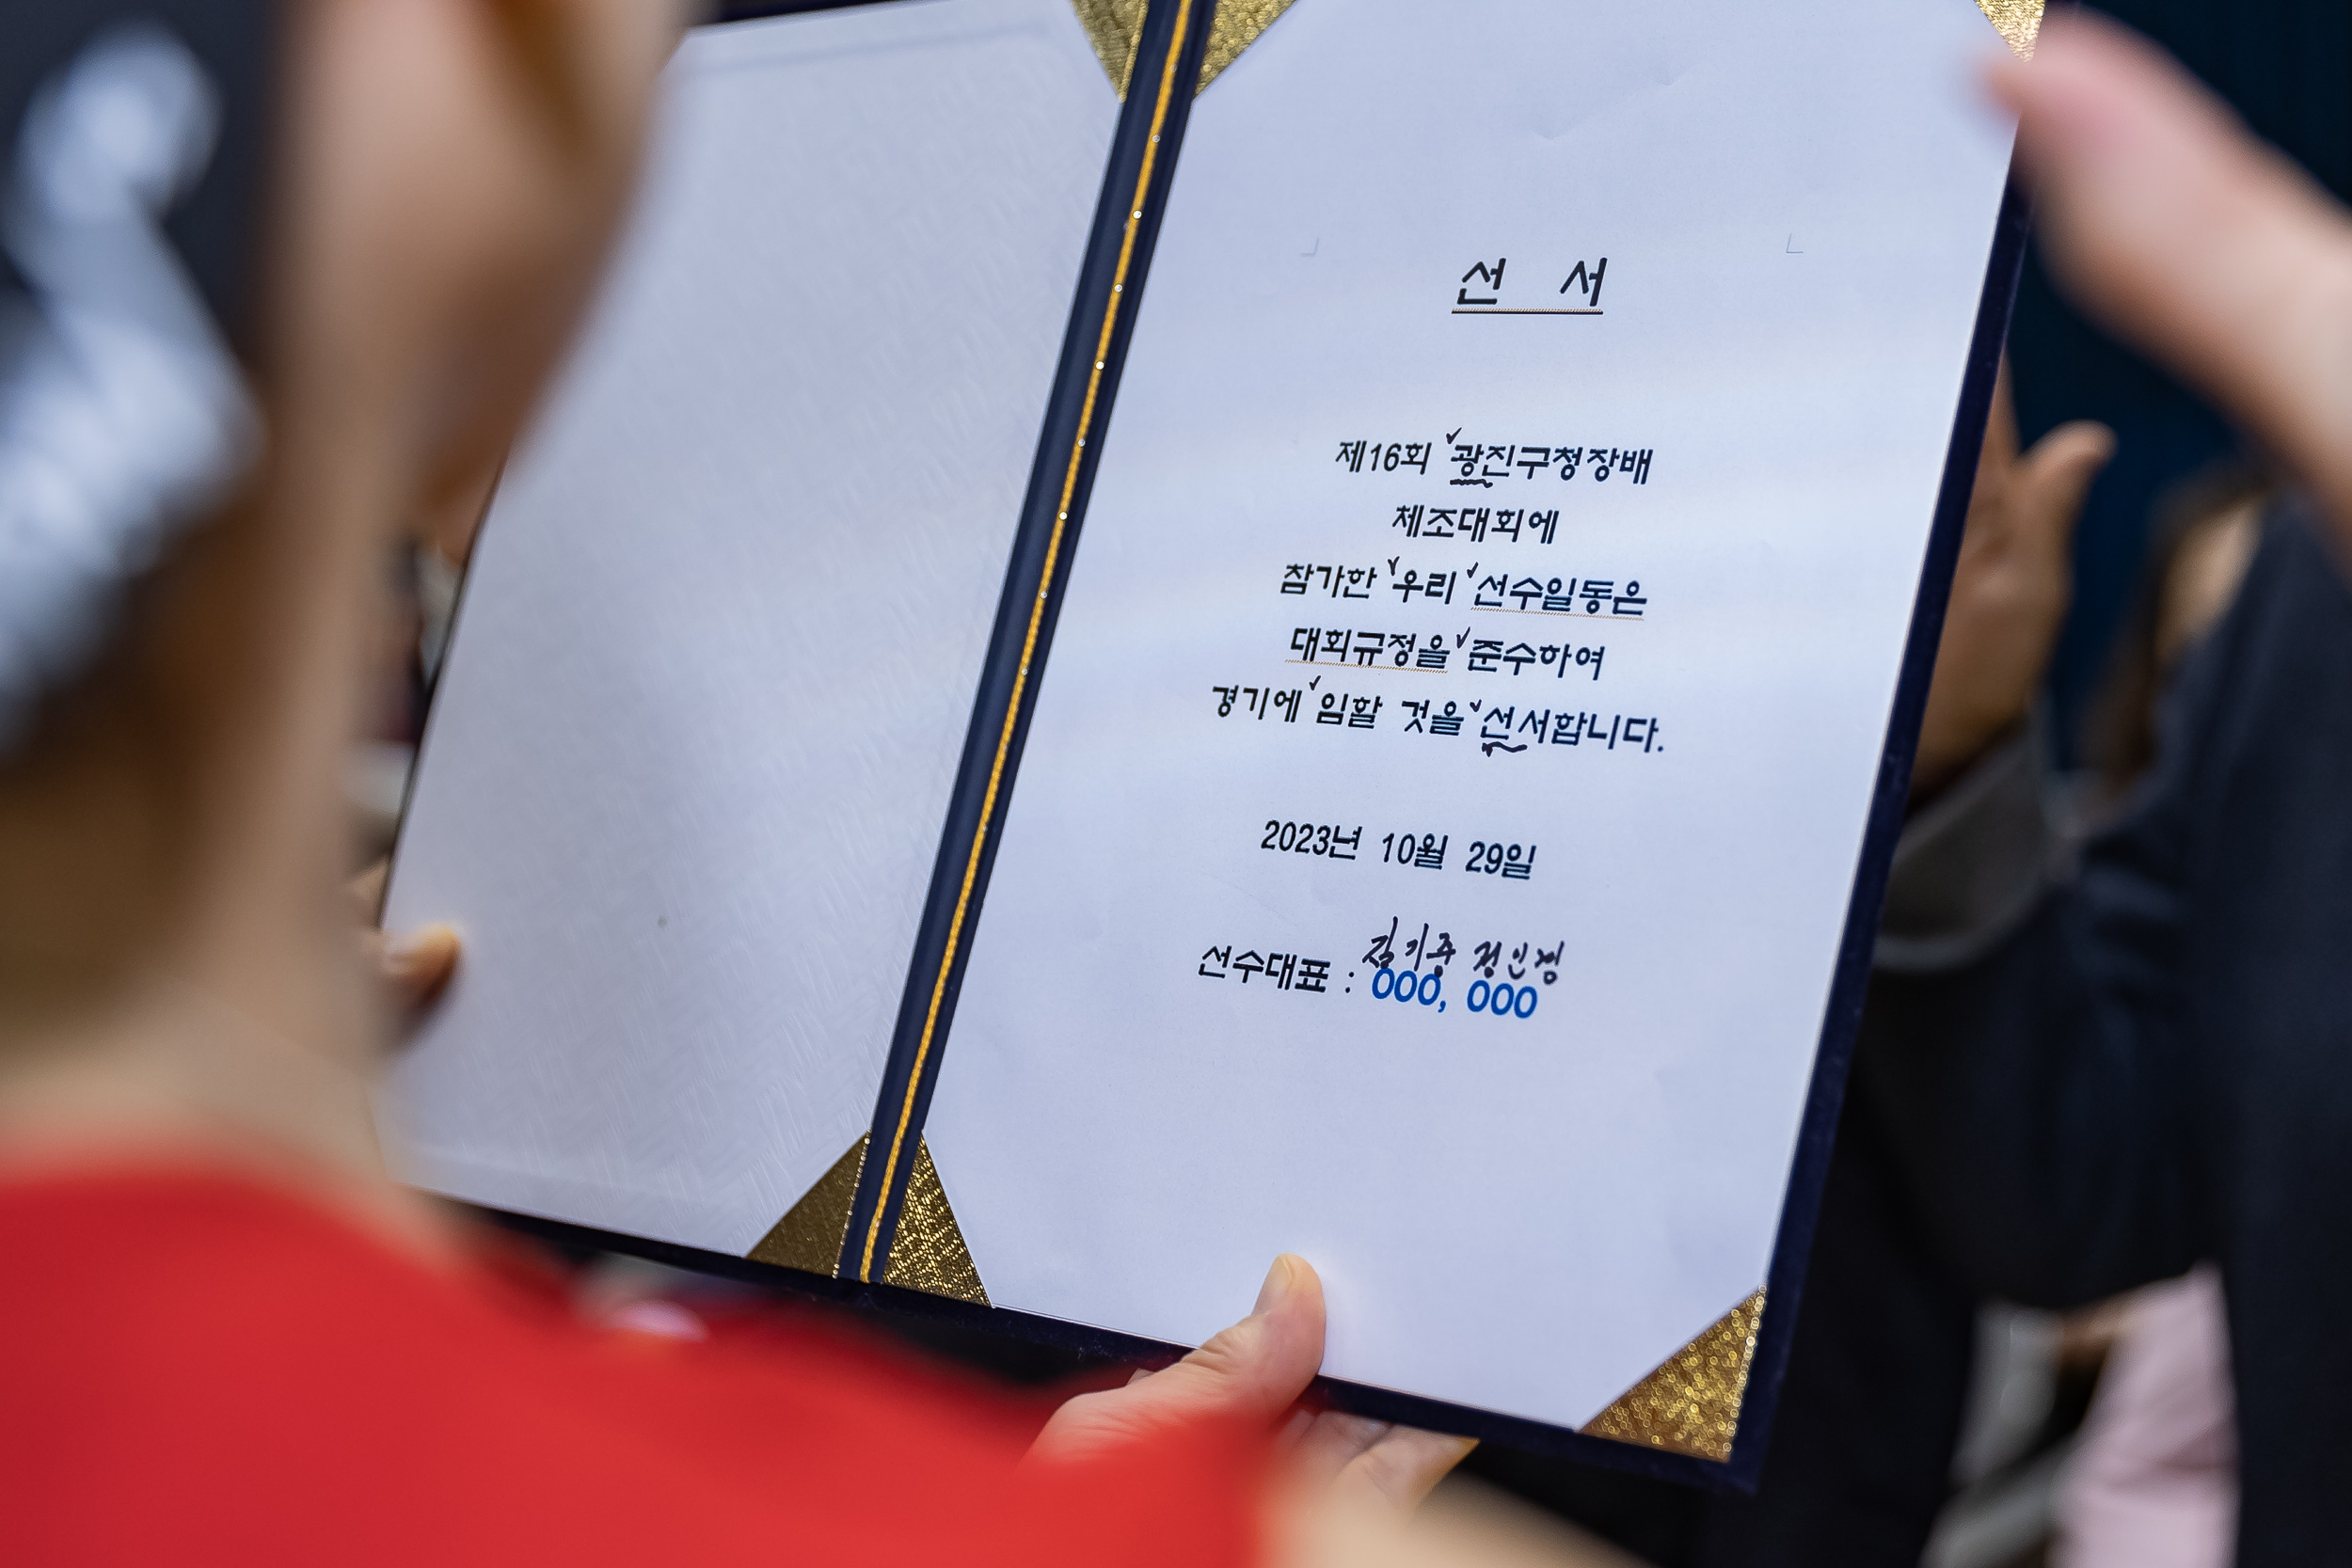 선 서
제16회 광진구청장배
체조대회에
참가한 우리 선수일동은
대회규정을 준수하여
경기에 임할 것을 선서합니다.
2023년 10월 29일
김기종 정인경
선수대표 : OOO, OOO